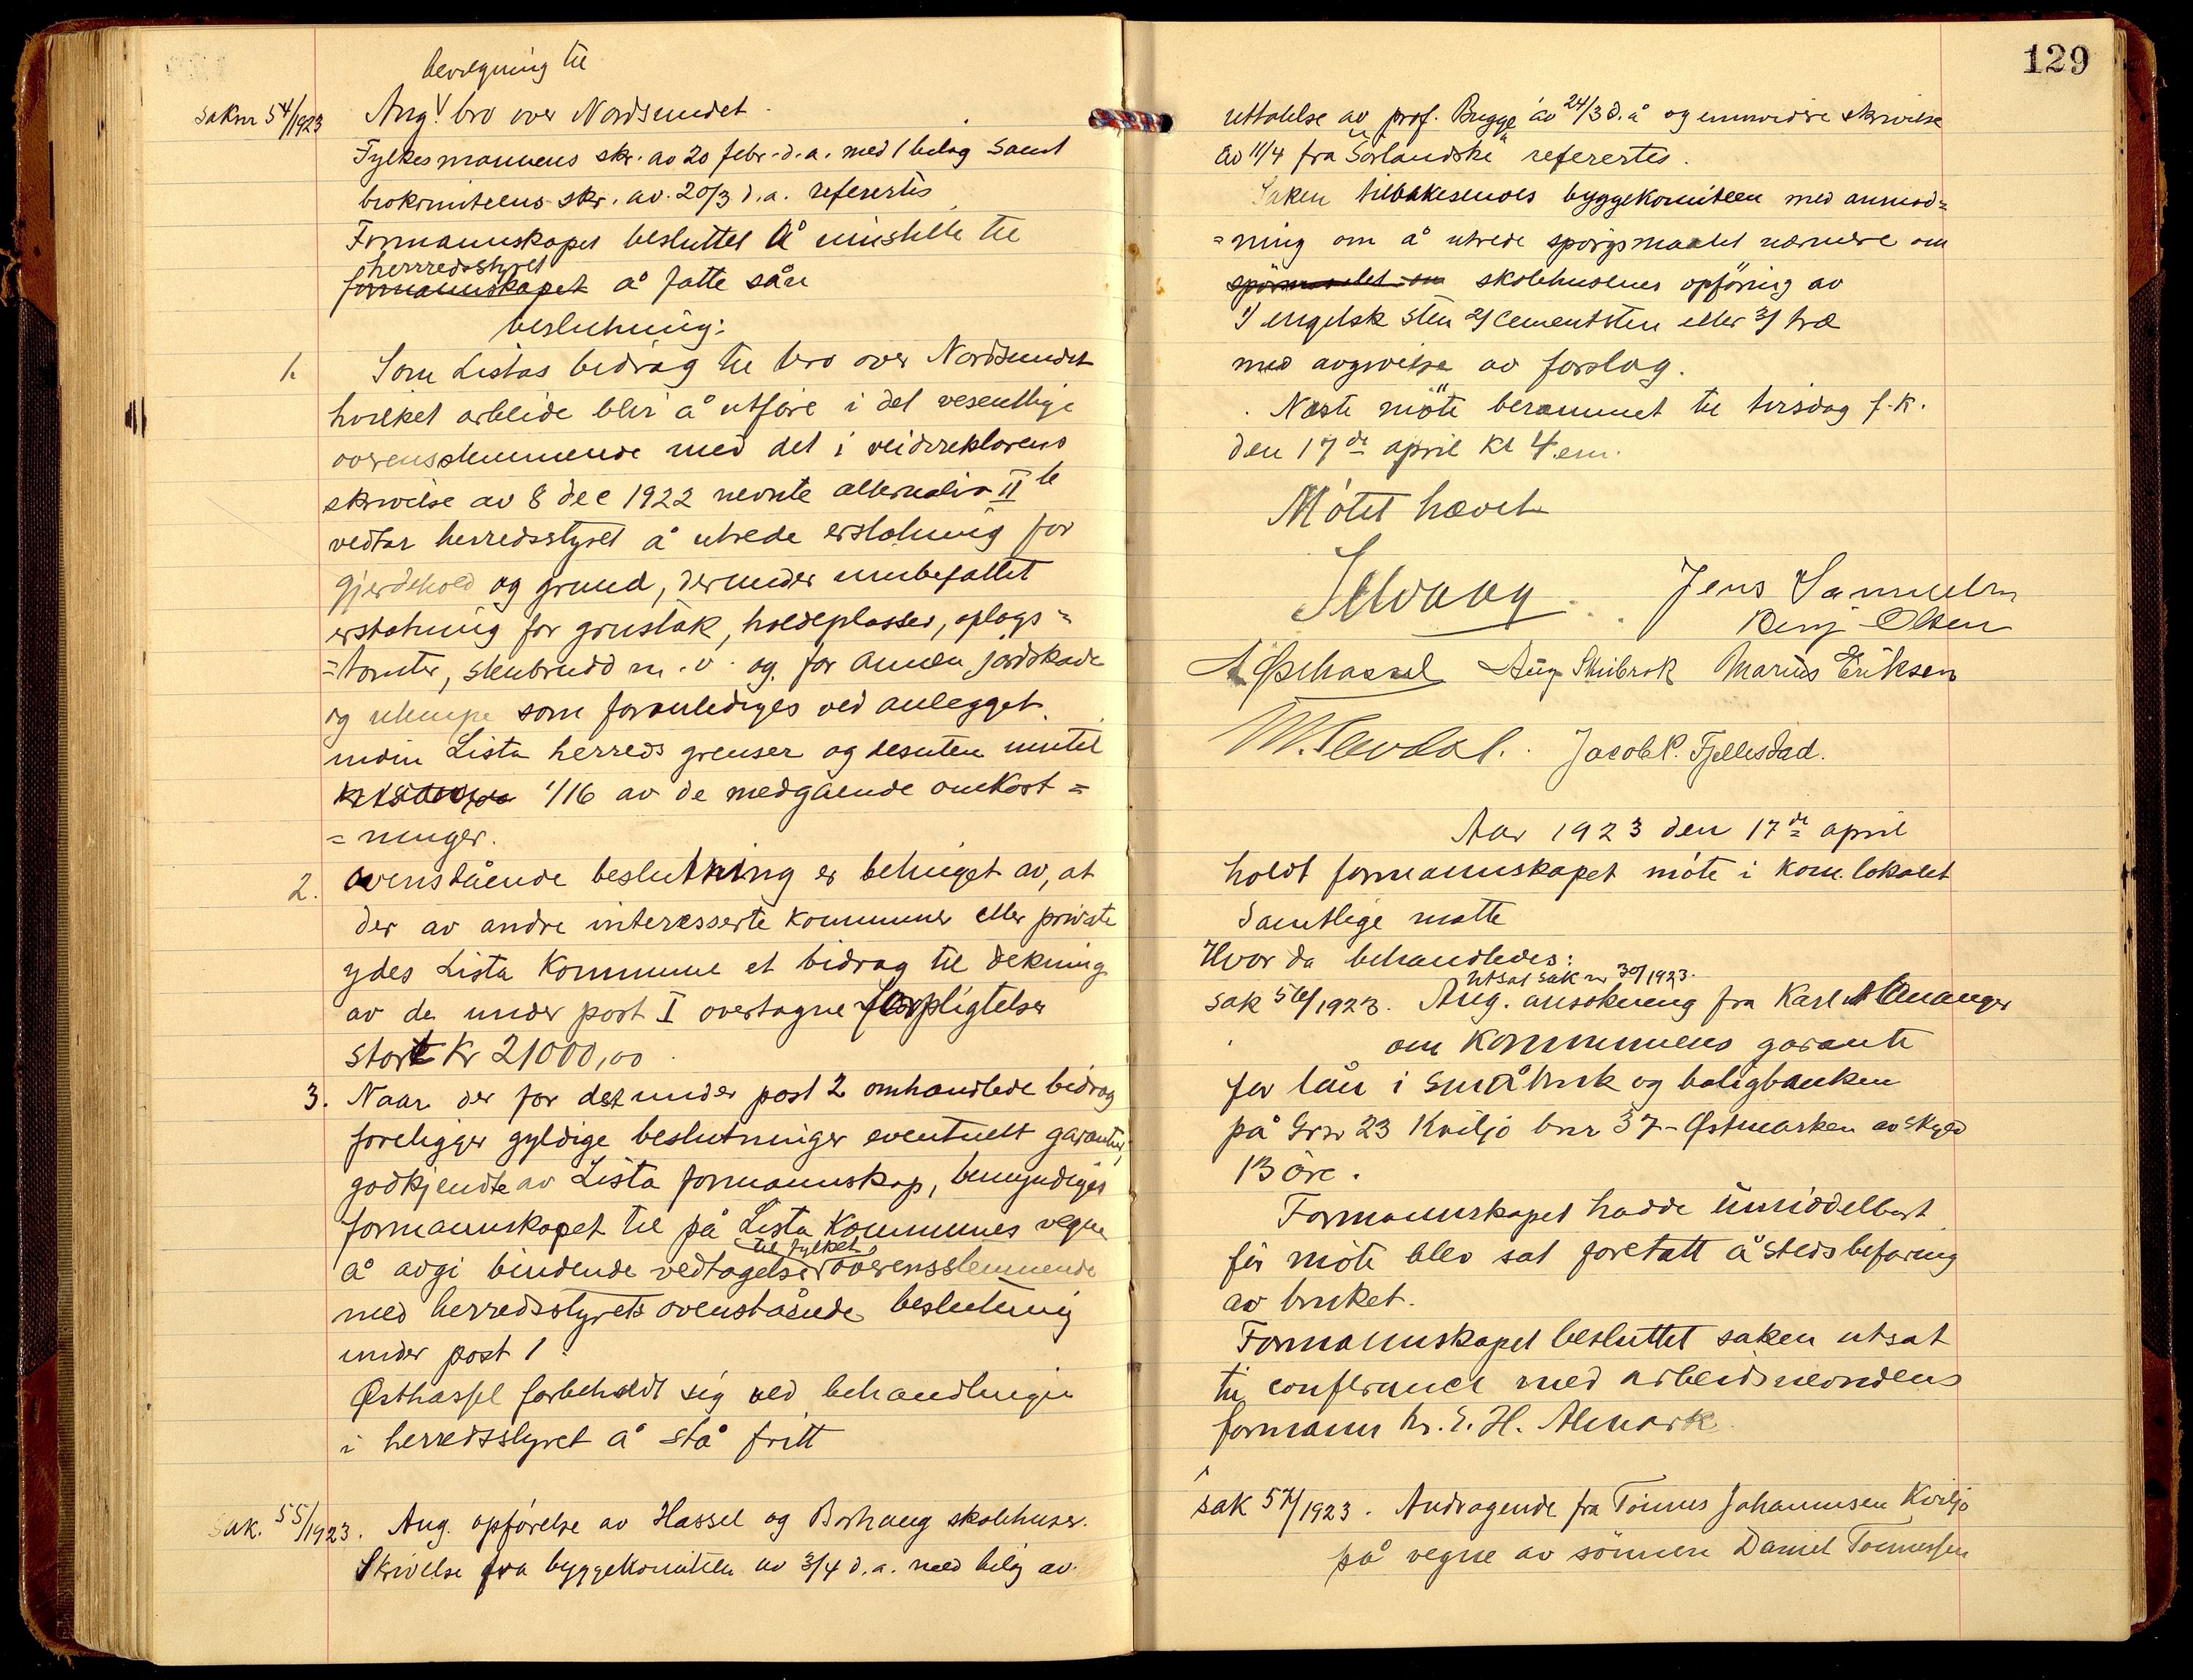 bevilgning til
Sak nr 54/1923 Ang. bro over Nordsundet.
Fylkesmannens skr. av 20 febr. d.a. med 1 bilag samt
brokomiteens skr. av. 20/3 d.a. refertes
Formannskapet besluttet å innstille til
herredsstyret
formannskapet å fatte sån
beslutning:
1. Som Listas bidrag til bro over Nordsundet
hvilket arbeide blir å utføre i det vesentlige
overensstemmende med det i veidirektørens
skrivelse av 8 dec 1922 nevnte alternativ II te
vedtar herredsstyret å utrede erstatning for
gjerdehold og grund, derunder innbefattet
erstatning for grustak, holdeplasser, oplags=
=tomter, stenbrudd m.v. og for annen jordskade
og ulempe som foranlediges ved anlegget
inden Lista herreds grenser og desuten inntil
1/16 av de medgående omkost=
=ninger.
2. Ovenstående beslutning er betinget av, at
der av andre interesserte kommuner eller private
ydes Lista kommune et bidrag til dekning
av de under post I overtagne forpligtelser
stort kr 21000,00
3. Naar der for det under post 2 omhandlede bidrag
foreligger gyldige beslutninger eventuelt garantier,
godkjendte av Lista formannskap, bemyndiges
formannskapet til på Lista kommunes vegne
til fylket
å avgi bindende vedtagelser overensstemmende
med herredsstyrets ovenstående beslutning
under post 1.
Østhassel forbeholdt sig ved behandlingen
i herredsstyret å stå fritt
Sak. 55/1923. Ang. opførelse av Hassel og Borhaug skolehuser.
Skrivelse fra byggekomiteen av 3/4 d.a. med bilag av
129
uttalelse av prof. Bugge av 24/3 d.å og ennvidere skrivelse
av 11/4 fra "Sørlandske" refertes.
Saken tilbakesendes byggekomiteen med anmod=
=ning om å utrede spørgsmaalet nærmere om
spørsmaalet om skolehusenes opføring av
1/ engelsk sten 2/ cementsten eller 3/ træ
med avgivelse av forslag.
Næste møte berammet til tirsdag f.k.
den 17de april kl 4 em.
Møtet hævet
Jens Samuelsen
Benj Olsen
A Østhassel Aug Stubrok Marius Eriksen
Jacob P. Fjellestad.
Aar 1923 den 17de april
holdt formannskapet møte i kom. lokalet
Samtlige møtte
Hvor da behandledes:
Utsat sak nr 30/1923.
Sak 56/1923. Ang. ansøkning fra Karl A Onanger
om kommunens garanti
for lån i småbruk og boligbanken
på Gnr 23 Kviljo bnr 37- Østmarken av skyld
13 øre.
Formannskapet hadde umiddelbart
før møte blev sat foretatt åstedsbefaring
av bruket.
Formannskapet besluttet saken utsat
til conferance med arbeidsnevndens
formann hr. E. H. Almark
Sak 57/1923. Andragende fra Tønnes Johannesen Kviljo
på vegne av sønnen Daniel Tønnessen